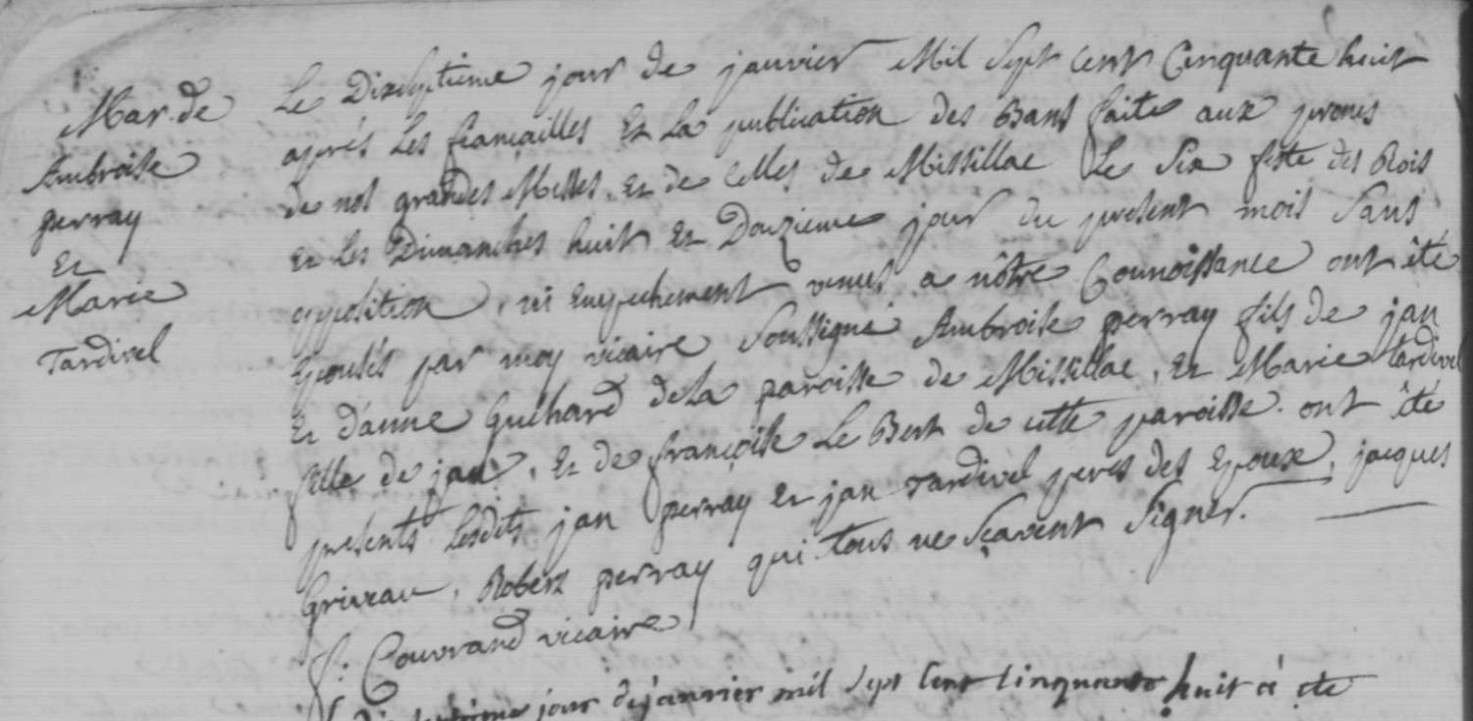 Mar. de
Ambroise
perray
Et
Marie
Tardivel
Le Dixseptieme jour de janvier Mil Sept cent Cinquante huit
après Les fiançailles Et La publication des Bans faite aux prones
de nos grandes Messes. Et de Celles de Missillac Le Six feste des Rois
Et Les Dimanches huit Et Douzieme jour du present mois Sans
opposition, ni Empechement venus a nôtre Connoissance ont été
Epousés par moy vicaire Soussigné Ambroise perray fils de jan
Et d'anne Guéhard de La paroisse de Missillac, Et Marie tardivel
fille de jan, Et de françoise Le Bert de cette paroisse. ont été
presents Lesdits jan perray Et jan Tardivel peres des Epoux, jacques
Griveau, Robert perray qui tous ne Sçavent Signer.
f. Couvrand vicaire
jour de janvier mil Sept Cent Cinquante huit à été